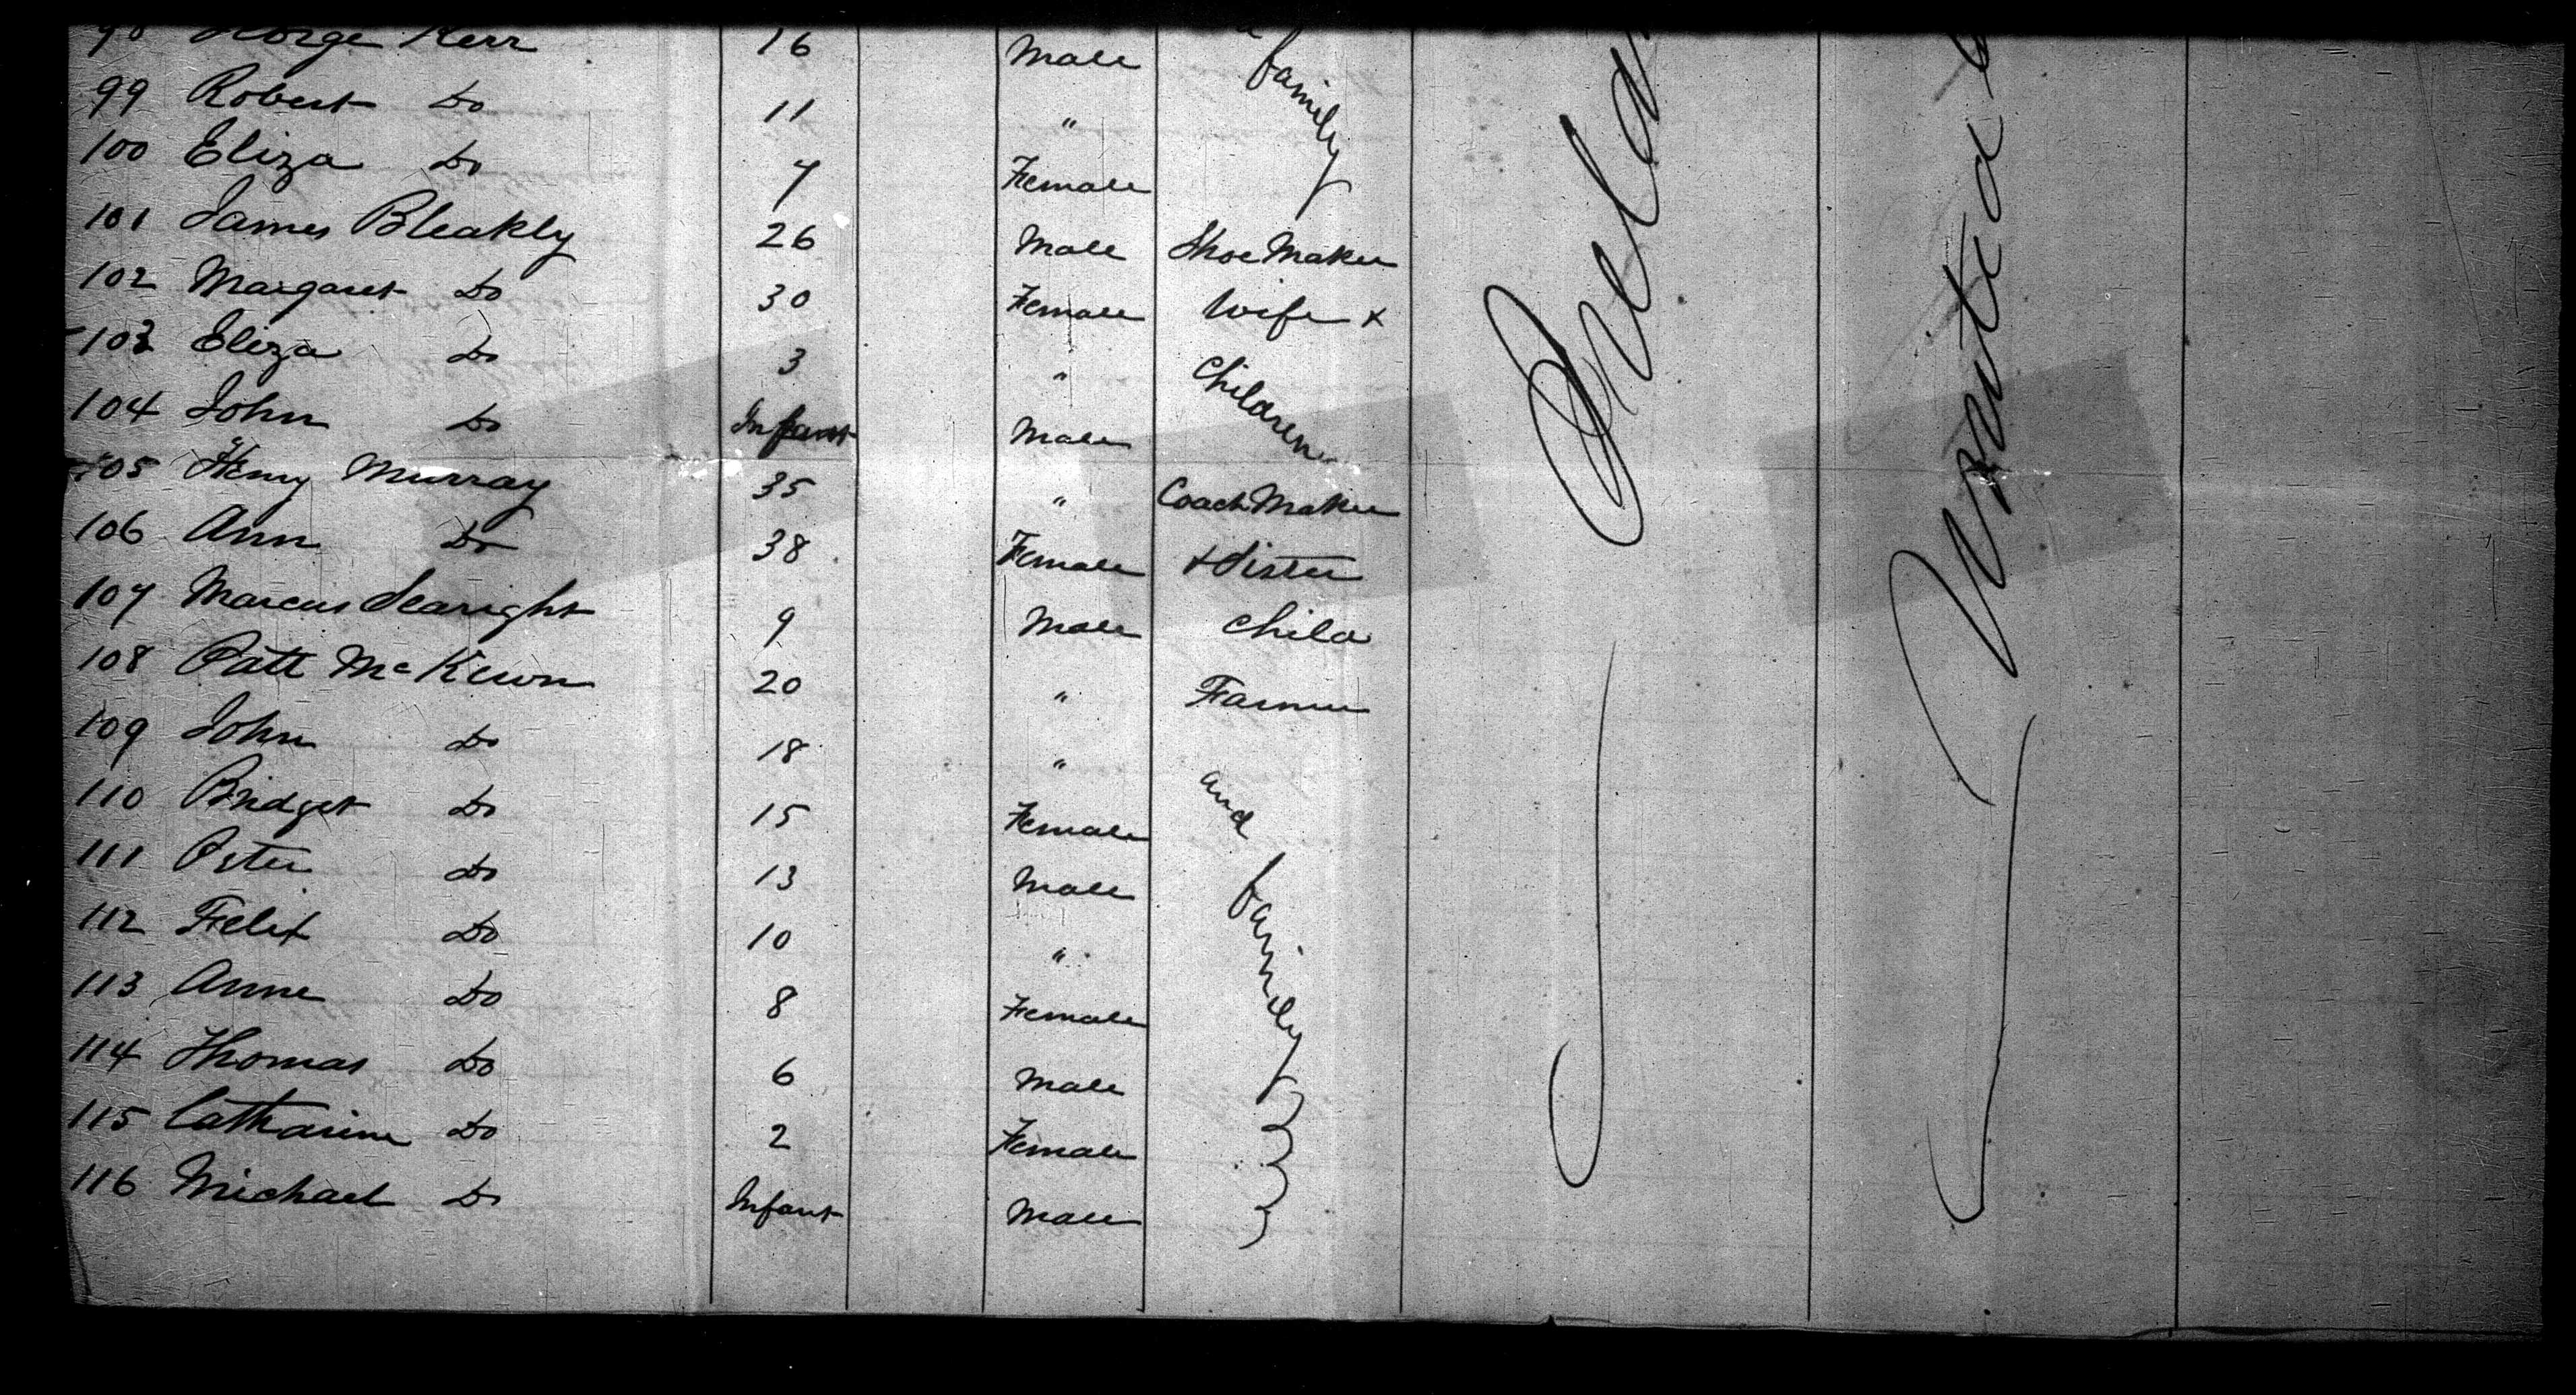 98 George Kerr 16 Male
99 Robert Do 11 " family
100 Eliza Do 7 Female
101 James Bleakly 26 Male Shoe Maker
102 Margaret Do 30 Female Wife &
103 Eliza Do 3 " Children
104 John Do Infant Male
105 Henry Murray 35 " Coach Maker
106 Ann Do 38 Female & Sister
107 Marcus Searight 9 Male Child
108 Patt McKewn 20 " Farmer
109 John Do 18 " and
110 Bridget Do 15 Female
111 Peter Do 13 Male family
112 Felix Do 10 "
113 Anne Do 8 Female
114 Thomas Do 6 Male
115 Catharine Do 2 Female
116 Michael Do Infant Male
Irelan
United